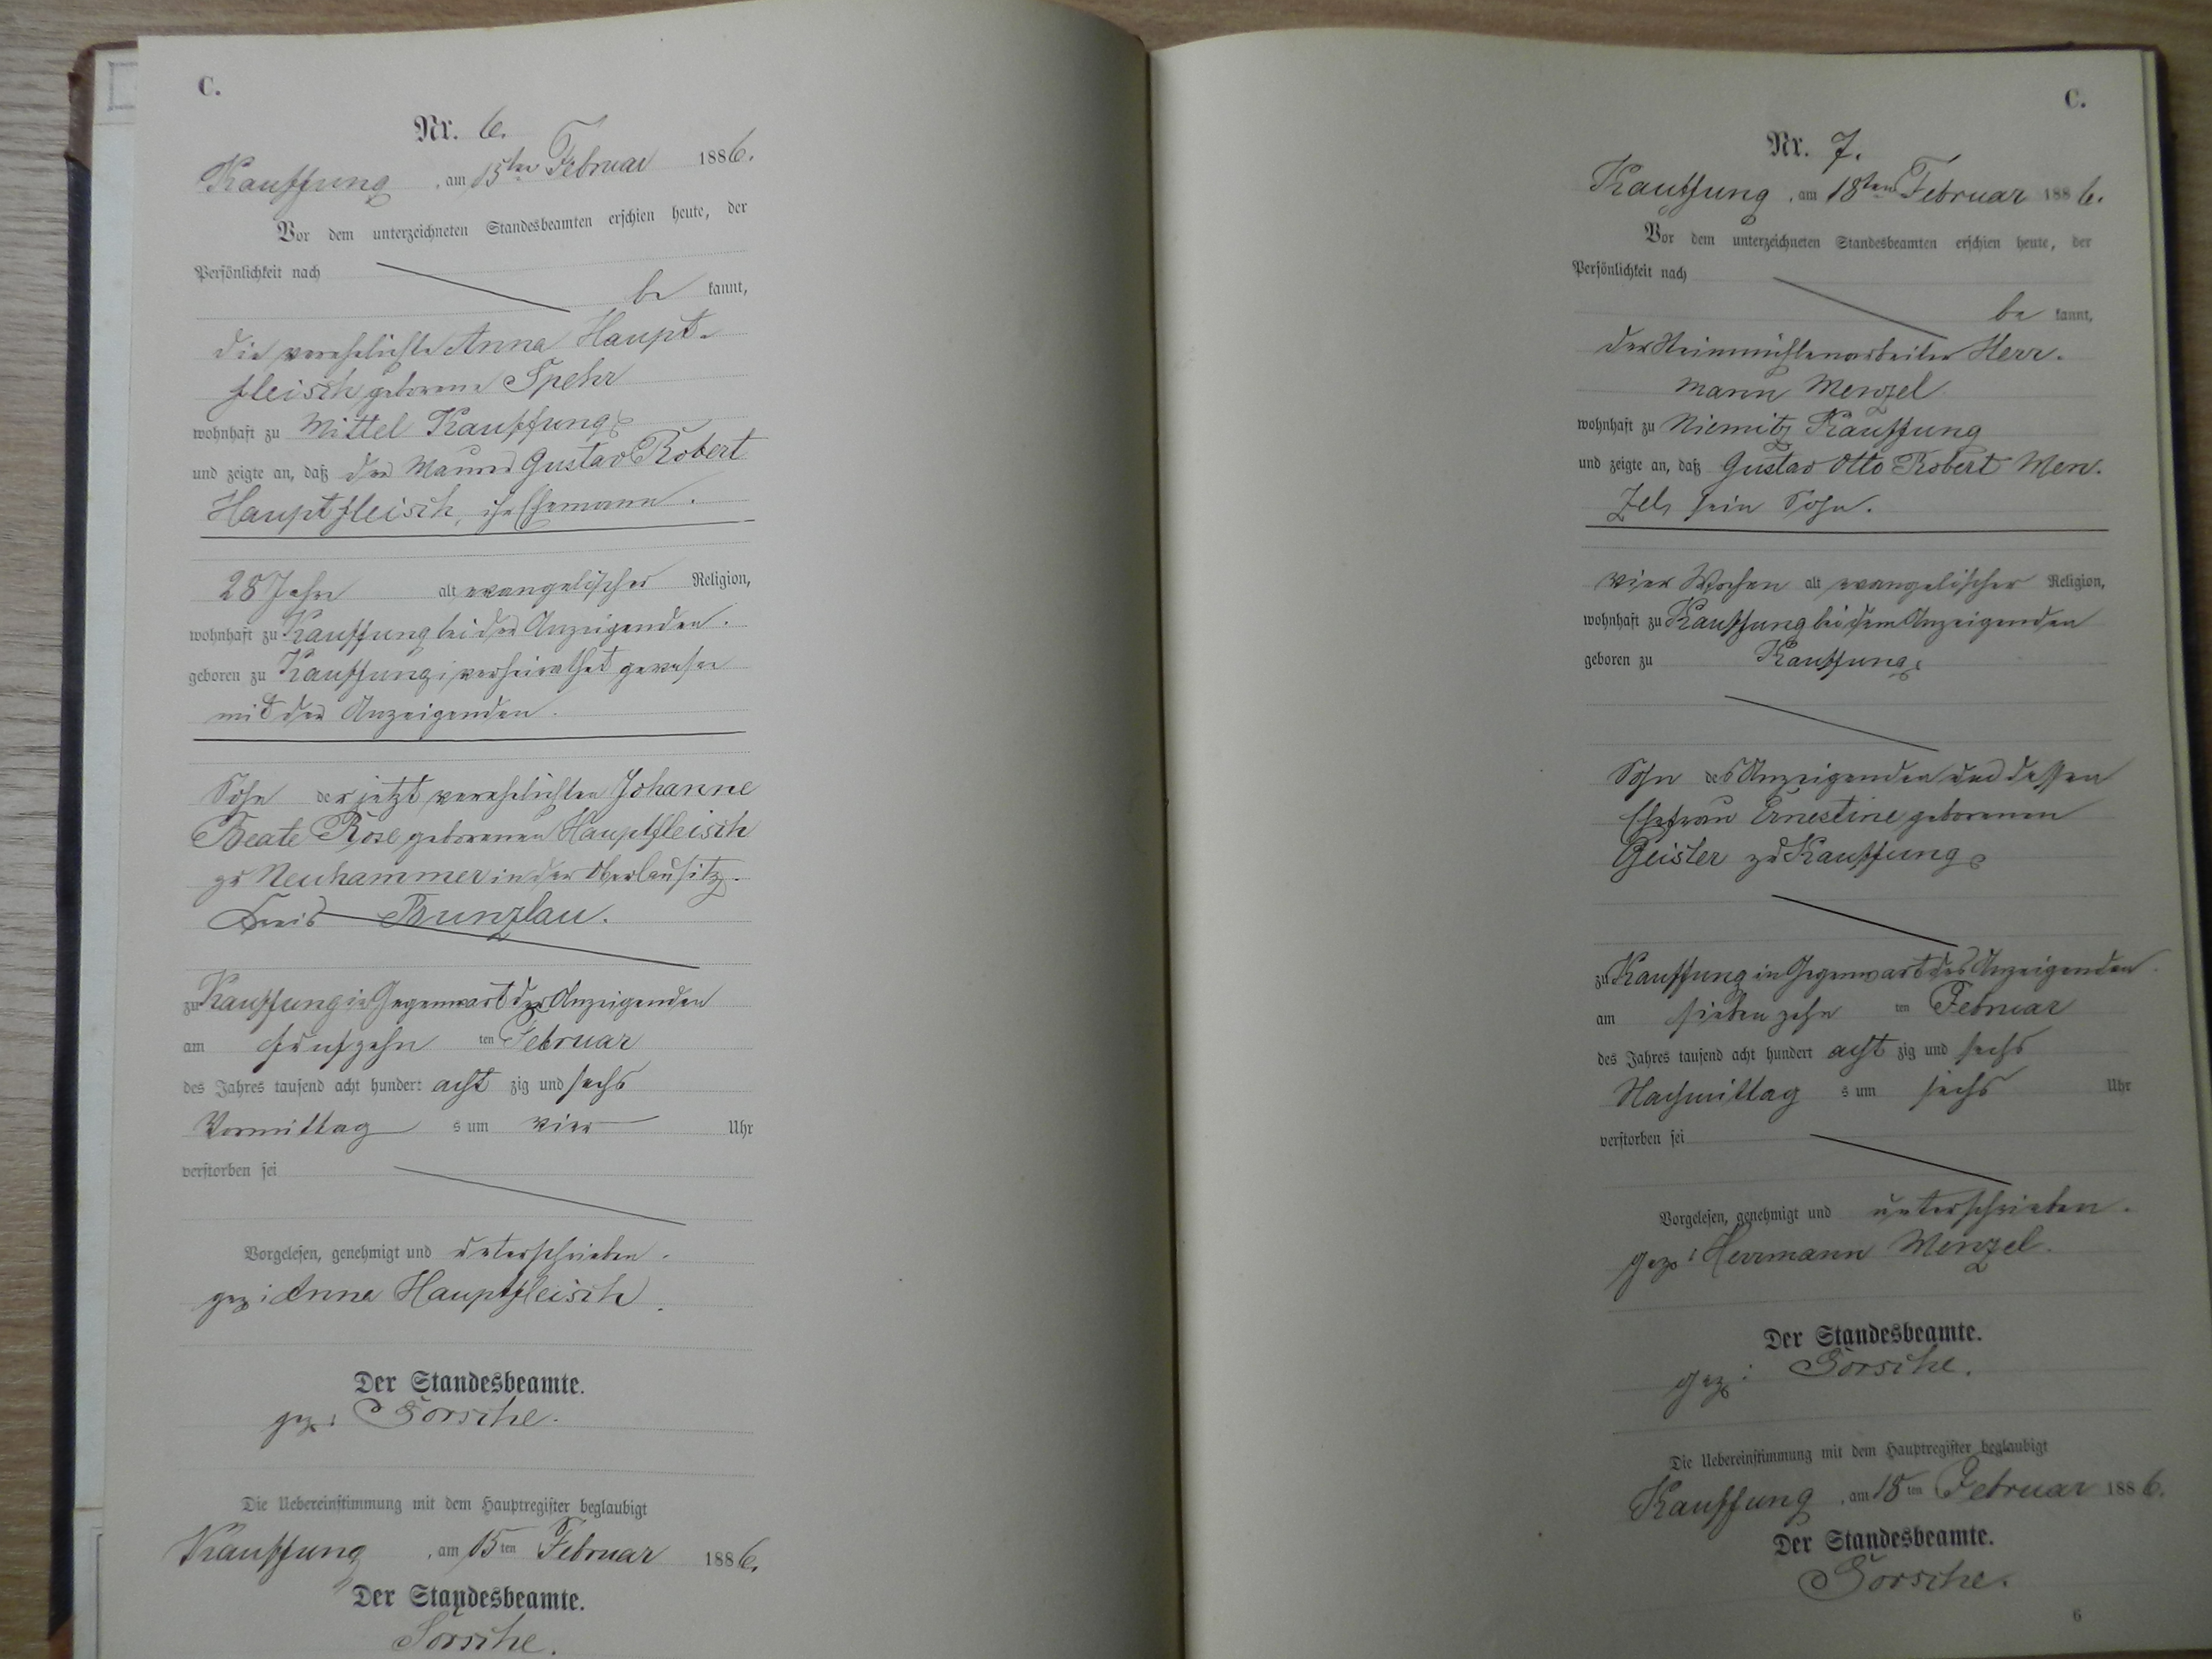 C.
Nr. 6.
Kauffung, am 15ten Februar 1886.
Vor dem unterzeichneten Standesbeamten erschien heute, der
Persönlichkeit nach
be kannt,
die verehelichte Anna Haupt-
fleisch geborene Spehr
wohnhaft zu Mittel Kauffung,
und zeigte an, daß der Maurer Gustav Robert
Hauptfleisch, ihr Ehemann.
28 Jahre alt evangelischer Religion,
wohnhaft zu Kauffung bei der Anzeigenden.
geboren zu Kauffung, verheirathet gewesen
mit der Anzeigenden.
Sohn der jetzt verehelichten Johanne
Beate Rose geborenen Hauptfleisch
zu Neuhammer in der Oberlausitz.
Kreis Bunzlau.
zu Kauffung in Gegenwart der Anzeigenden
am fünfzehn ten Februar
des Jahres tausend acht hundert acht zig und sechs
Vormittag s um vier Uhr
verstorben sei
Vorgelesen, genehmigt und unterschrieben.
gez: Anna Hauptfleisch.
Der Standesbeamte.
gez:
Die Uebereinstimmung mit dem Hauptregister beglaubigt
Kauffung, am 15ten Februar 1886.
Der Standesbeamte.
C.
Nr. 7.
Kauffung, am 18ten Februar 1886.
Vor dem unterzeichneten Standesbeamten erschien heute, der
Persönlichkeit nach
be kannt,
der Herr-
mann Menzel
wohnhaft zu Niemitz Kauffung
und zeigte an, daß Gustav Otto Robert Men-
zel, sein Sohn.
vier Wochen alt evangelischer Religion,
wohnhaft zu Kauffung bei dem Anzeigenden
geboren zu Kauffung,
Sohn des Anzeigenden und dessen
Ehefrau Ernestine geborenen
Geisler zu Kauffung
zu Kauffung in Gegenwart des Anzeigenden.
am siebenzehn ten Februar
des Jahres tausend acht hundert acht zig und sechs
Nachmittag s um sechs Uhr
verstorben sei
Vorgelesen, genehmigt und unterschrieben.
gez: Herrmann Menzel.
Der Standesbeamte.
gez:
Die Uebereinstimmung mit dem Hauptregister beglaubigt
Kauffung, am 18ten Februar 1886.
Der Standesbeamte.
6